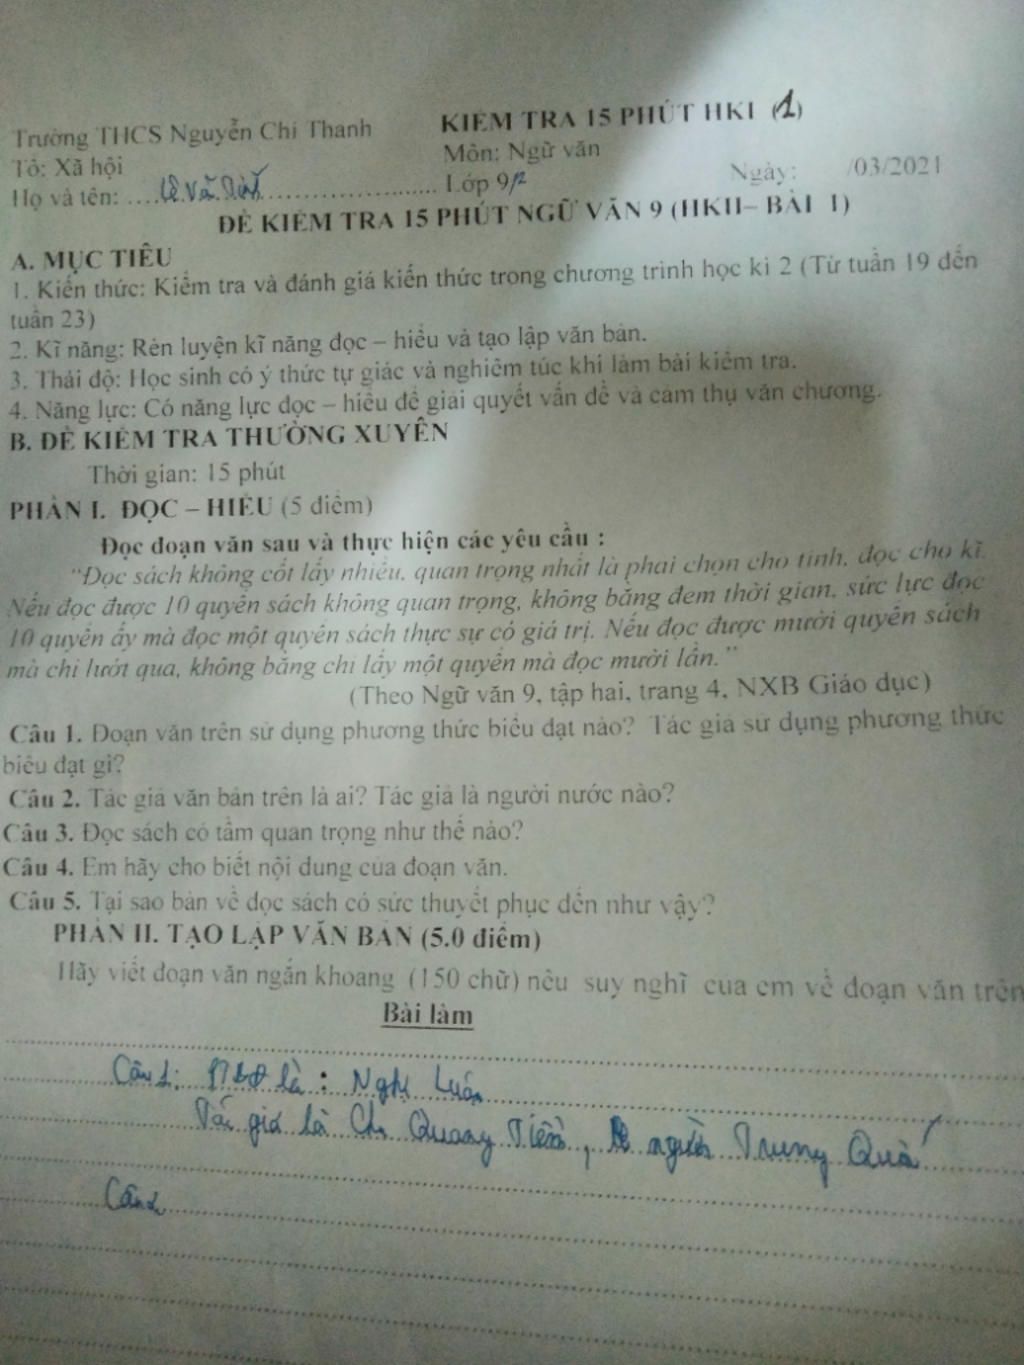 Trường THCS Nguyễn Chí Thanh
KIỂM TRA 15 PHÚT HKI (1)
Tổ: Xã hội
Môn: Ngữ văn
Họ và tên: .... Lê Văn ....................
Lớp 9/2
Ngày: /03/2021
ĐỀ KIỂM TRA 15 PHÚT NGỮ VĂN 9 (HKII– BÀI 1)
A. MỤC TIÊU
1. Kiến thức: Kiểm tra và đánh giá kiến thức trong chương trình học kì 2 (Từ tuần 19 đến
tuần 23)
2. Kĩ năng: Rèn luyện kĩ năng đọc – hiểu và tạo lập văn bản.
3. Thái độ: Học sinh có ý thức tự giác và nghiêm túc khi làm bài kiểm tra.
4. Năng lực: Có năng lực đọc – hiểu để giải quyết vấn đề và cảm thụ văn chương.
B. ĐỀ KIỂM TRA THƯỜNG XUYÊN
Thời gian: 15 phút
PHẦN I. ĐỌC – HIỂU (5 điểm)
Đọc đoạn văn sau và thực hiện các yêu cầu :
"Đọc sách không cốt lấy nhiều, quan trọng nhất là phải chọn cho tinh, đọc cho kĩ.
Nếu đọc được 10 quyển sách không quan trọng, không bằng đem thời gian, sức lực đọc
10 quyển ấy mà đọc một quyển sách thực sự có giá trị. Nếu đọc được mười quyển sách
mà chỉ lướt qua, không bằng chỉ lấy một quyển mà đọc mười lần."
(Theo Ngữ văn 9, tập hai, trang 4, NXB Giáo dục)
Câu 1. Đoạn văn trên sử dụng phương thức biểu đạt nào? Tác giả sử dụng phương thức
biểu đạt gì?
Câu 2. Tác giả văn bản trên là ai? Tác giả là người nước nào?
Câu 3. Đọc sách có tầm quan trọng như thế nào?
Câu 4. Em hãy cho biết nội dung của đoạn văn.
Câu 5. Tại sao bàn về đọc sách có sức thuyết phục đến như vậy?
PHẦN II. TẠO LẬP VĂN BẢN (5.0 điểm)
Hãy viết đoạn văn ngắn khoảng (150 chữ) nêu suy nghĩ của em về đoạn văn trên
Bài làm
Câu 1: PTBĐ là : Nghị Luận
Tác giả là Chu Quang Tiềm, người Trung Quốc
Câu 2